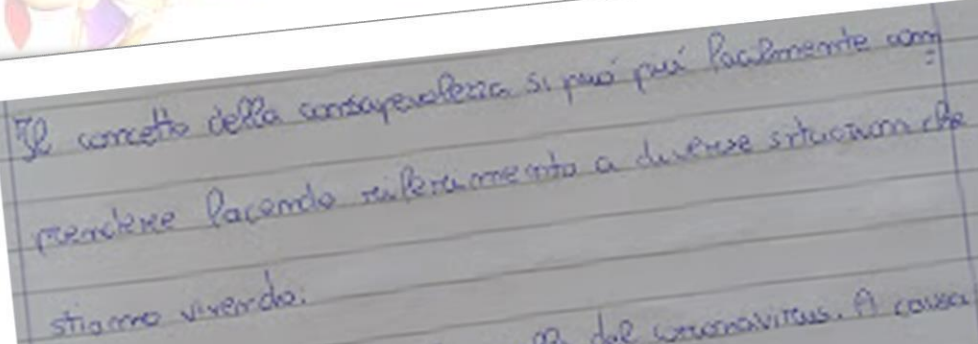 Il concetto della consapevolezza si può più facilmente com=
prendere facendo riferimento a diverse situazioni che
stiamo vivendo.
dal coronavirus. A causa